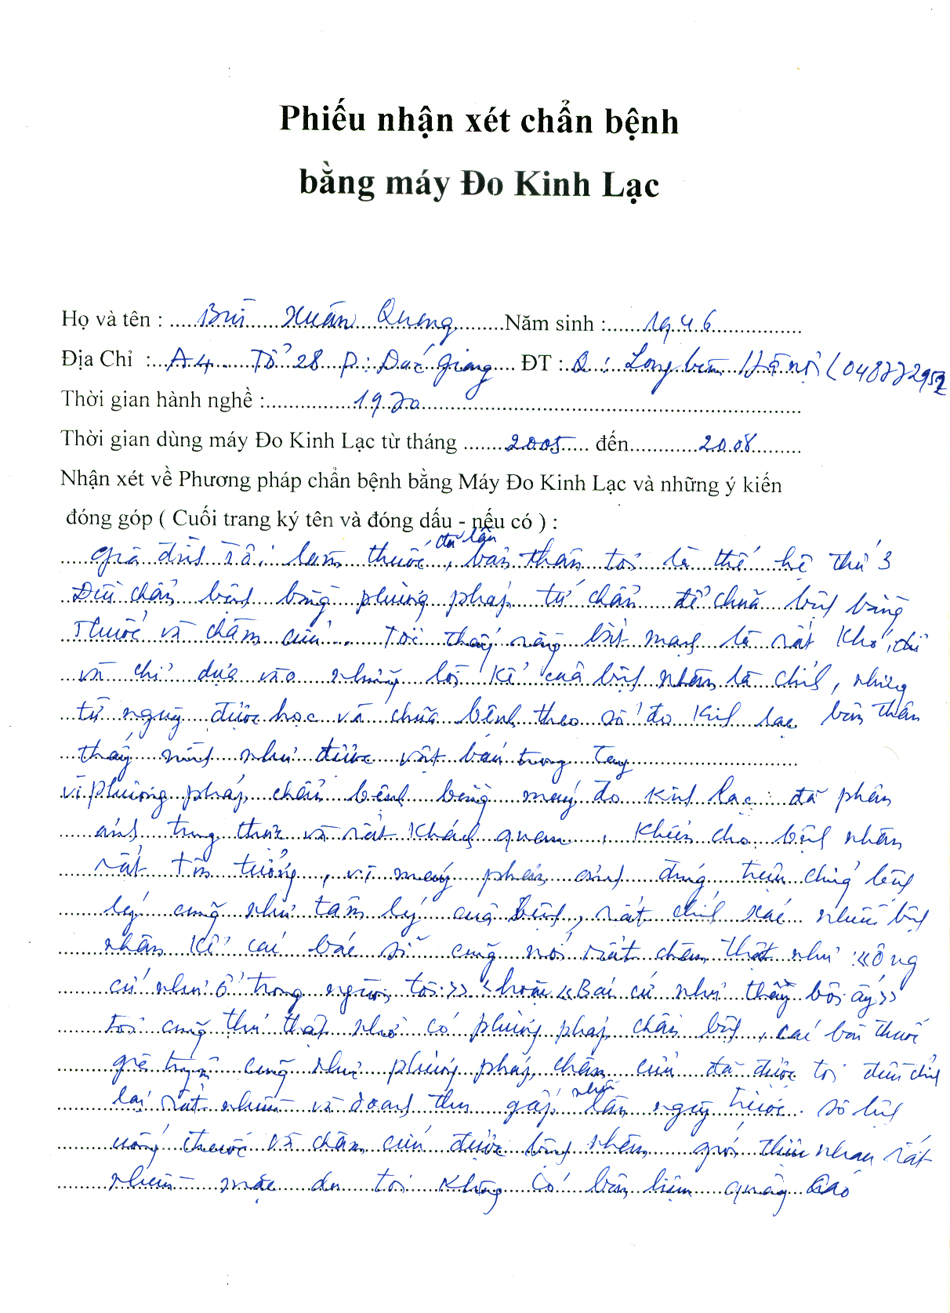 Phiếu nhận xét chẩn bệnh
bằng máy Đo Kinh Lạc
Họ và tên : Bùi Xuân Quang Năm sinh : 1946
Địa Chỉ : A4 Tổ 28 P: Đức Giang ĐT : Q: Long biên Hà nội (048772952
Thời gian hành nghề : 1970
Thời gian dùng máy Đo Kinh Lạc từ tháng 2005 đến 2008
Nhận xét về Phương pháp chẩn bệnh bằng Máy Đo Kinh Lạc và những ý kiến
đóng góp ( Cuối trang ký tên và đóng dấu - nếu có ) :
đã lâu
gia đình làm thuốc, bản thân tôi là thế hệ thứ 3
chẩn bệnh bằng phương pháp tứ chẩn để chữa bệnh bằng
thuốc và châm cứu. Tôi thấy rằng bắt mạch là rất khó,
và chỉ dựa vào những lời kể của bệnh nhân là chính, nhưng
từ ngày được học và chữa bệnh theo số đo kinh lạc bản thân
thấy mình như được vật báu trong tay
vì phương pháp chẩn bệnh bằng máy đo kinh lạc đã phản
ánh trung thực và rất khách quan, khiến cho bệnh nhân
rất tin tưởng, vì máy phản ánh đúng triệu chứng bệnh
lý cũng như tâm lý của bệnh, rất chính xác nhiều bệnh
nhân kể cả bác sĩ cũng nói rất chân thật như: "Ông
cứ như ở trong người tôi" hoặc "Bác cứ như thầy bói ấy"
tôi cũng thú thật nhờ có phương pháp chẩn bệnh, các bài thuốc
gia truyền cũng như phương pháp châm cứu đã được tôi
lại rất nhiều và doanh thu gấp nhiều lần ngày trước. số bệnh
uống thuốc và châm cứu được bệnh nhân giới thiệu nhau rất
nhiều mặc dù tôi không có biển hiệu quảng cáo